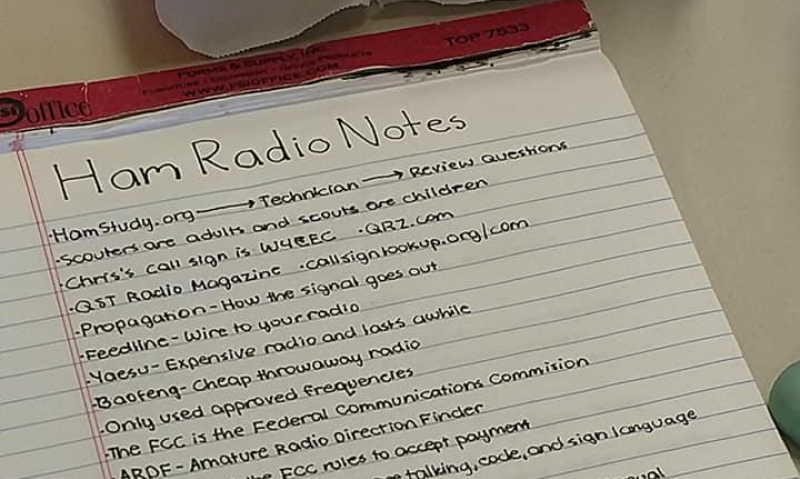 TOP 7533
FORMS & SUPPLY, INC.
WWW.FSIOFFICE.COM
office
Ham Radio Notes
·HamStudy.org → Technician → Review Questions
·Scouters are adults and scouts are children
·Chris's call sign is W4CEC ·QRZ.com
·QST Radio Magazine ·callsignlookup.org/com
·Propagation - How the signal goes out
·Feedline - Wire to your radio
·Yaesu - Expensive radio and lasts awhile
·Baofeng - Cheap throwaway radio
·Only used approved frequencies
·The FCC is the Federal Communications Commision
·ARDF - Amature Radio Direction Finder
FCC rules to accept payment
talking, code, and sign language